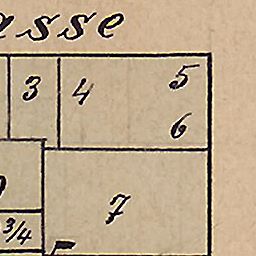 asse
3 4 5
6
7
3/4